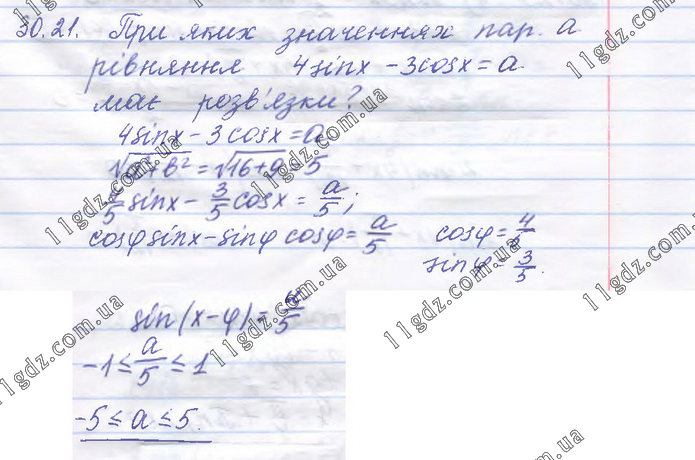 30.21. При яких значеннях пар. a
рівняння 4sinx - 3cosx = a
має розв'язки?
4sinx - 3cosx = a
√a²+b² = √16+9 = 5
4/5 sinx - 3/5 cosx = a/5;
cosφ sinx - sinφ cosφ = a/5 cosφ = 4/5
sinφ = 3/5.
sin(x-φ) = a/5
-1 ≤ a/5 ≤ 1
-5 ≤ a ≤ 5.
11gdz.com.ua
11gdz.com.ua
11gdz.com.ua
11gdz.com.ua
11gdz.com.ua
11gdz.com.ua
11gdz.com.ua
11gdz.com.ua